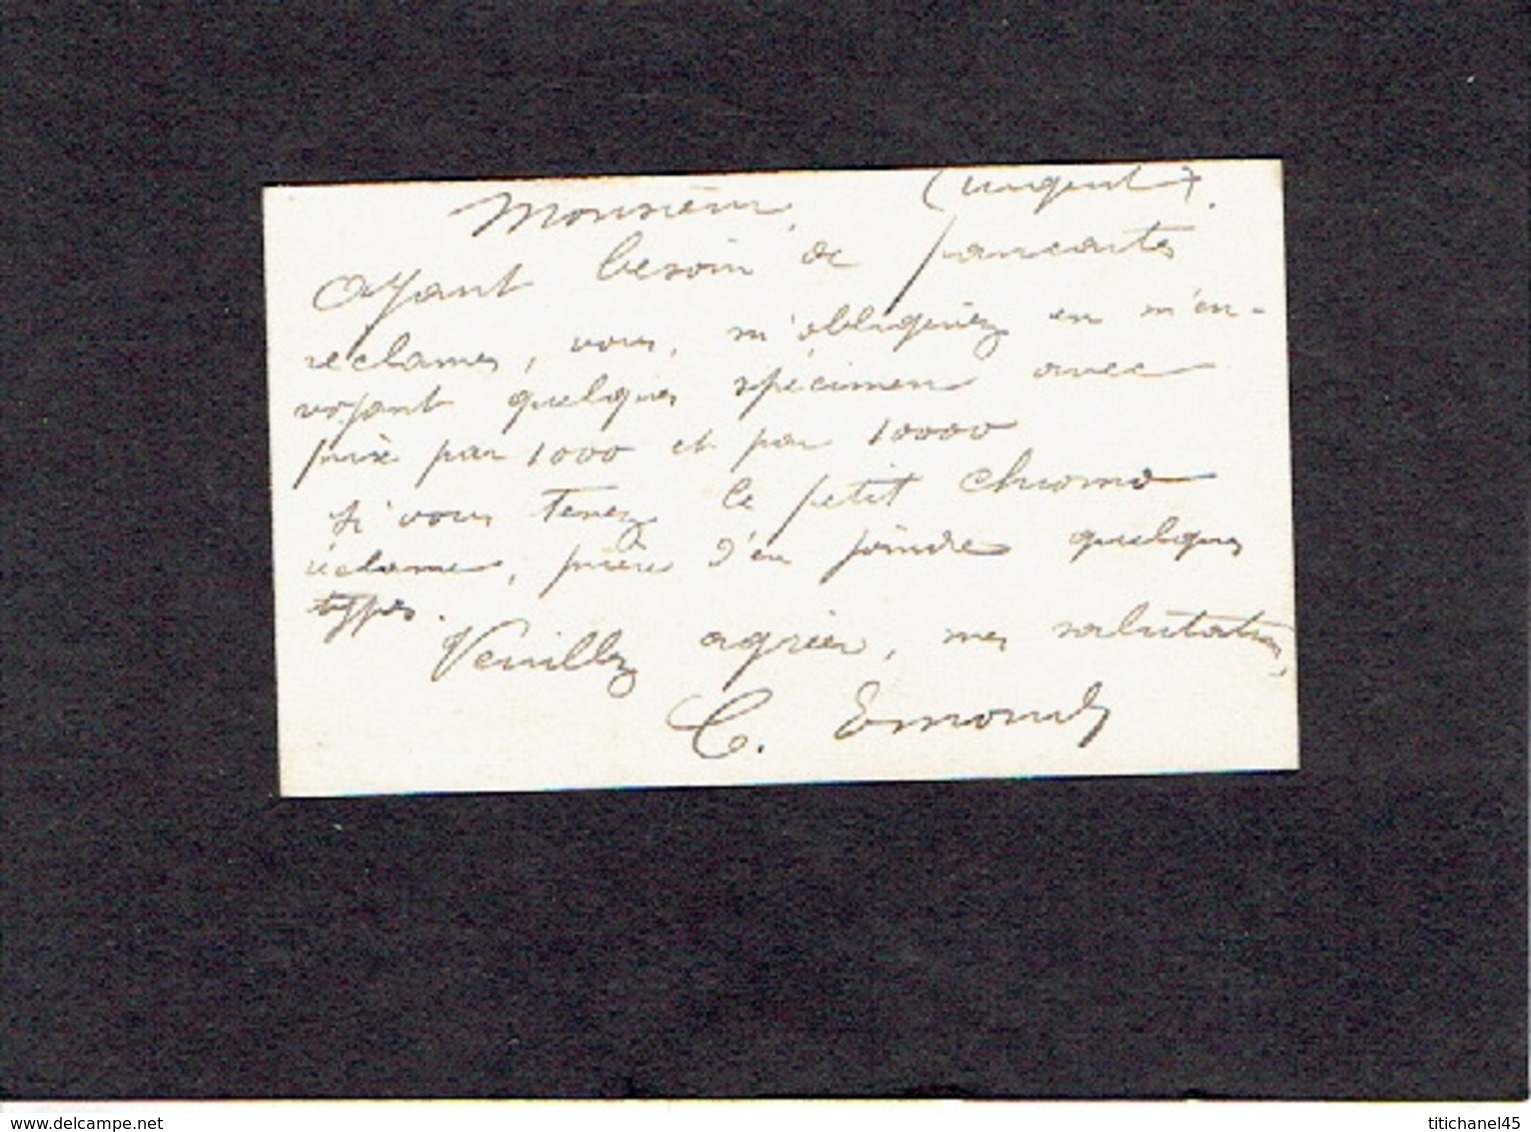 Monsieur, (urgent).
Ayant besoin de pancartes
réclames, vous, m'obligeriez en m'en-
voyant quelques spécimen avec
prix par 1000 et par 10000
Si vous tenez le petit chromo
réclame, prière d'en joindre quelques
types.
Veuillez agréer, mes salutations,
C. Emond
www.delcampe.net
titichanel45